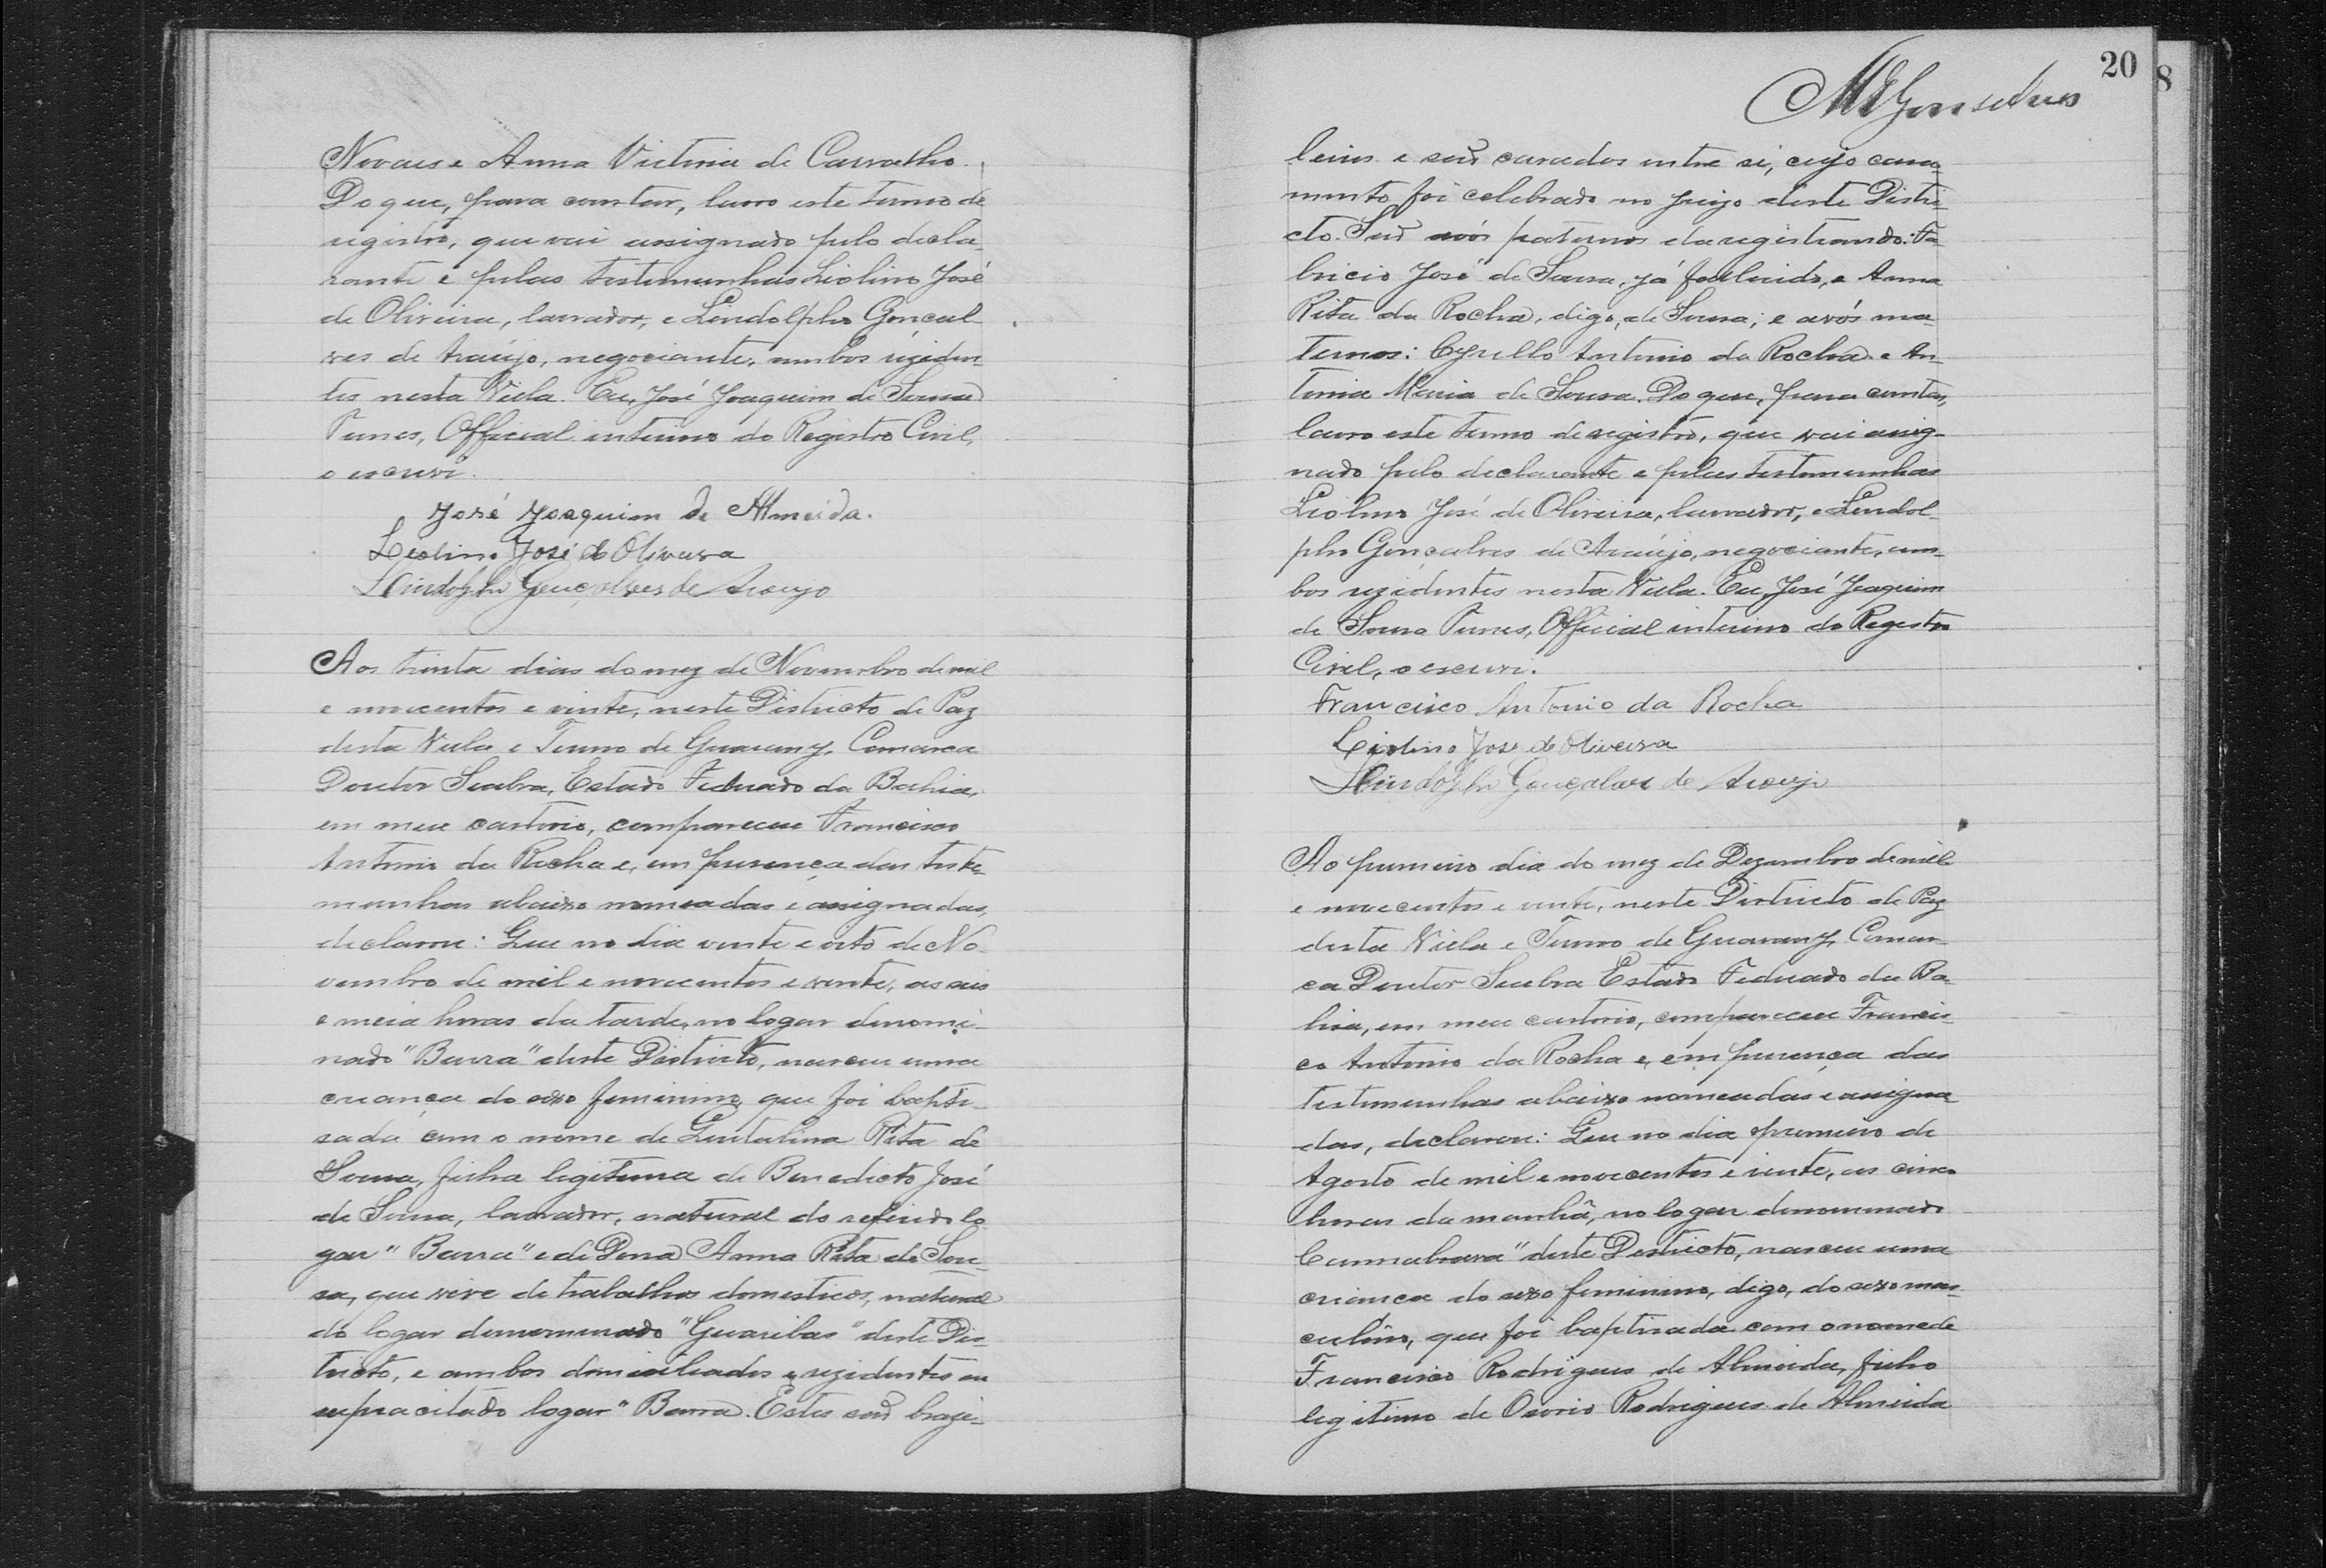 Novaes e Anna Victoria de Carvalho.
Do que, para constar, lavro este termo de
registro, que vai assignado pelo decla-
rante e pelas testemunhas Liolino José
de Oliveira, lavrador, e Lindolpho Gonçal
ves de Araújo, negociante, ambos rezidin-
tes nesta Villa. Eu, José Joaquim de Sousa
Tunes, Official interino do Registro Civil,
o escrevi.
José Joaquim de Almeida.
Liolino José de Oliveira
Lindolpho Gonçalves de Araujo
Aos trinta dias do mez de Novembro de mil
e novecentos e vinte, neste Districto de Paz
desta Villa e Termo de Guarany, Comarca
Doutor Seabra, Estado Federado da Bahia,
em meu cartorio, compareceu Francisco
Antonio da Rocha e, em presença das teste-
munhas abaixo nomeadas e assignadas,
declarou: Que no dia vinte e oito de No-
vembro de mil e novecentos e vinte, as seis
e meia horas da tarde, no logar denomi-
nado "Barra" deste Districto, nasceu uma
criança do sexo feminino, que foi bapti-
sada com o nome de Rita de
Sousa, filha legitima de Benedicto José
de Sousa, lavrador, natural do referido lo
gar "Barra" e de Dona Anna Rita de Sou-
sa, que vive de trabalhos domesticos, natural
do logar denominado "Guaribas" deste Dis-
tricto, e ambos domiciliados e rezidentes no
supracitado logar "Barra. Estes são brazi-
20
8
MSGonsalves
leiros e são casados entre si, cujo casa-
mento foi celebrado no juizo deste Distri-
cto. São avós paternos da registrando: Fa-
bricio José de Sousa, já fallecido, e Anna
Rita da Rocha, digo, de Sousa; e avós ma-
ternos: Cyrillo Antonio da Rocha e An-
tonia Maria de Sousa. Do que, para constar,
lavro este termo de registro, que vai assig-
nado pelo declarante e pelas testemunhas
Liolino José de Oliveira, lavrador, e Lindol-
pho Gonçalves de Araújo, negociante, am-
bos rezidentes nesta Villa. Eu, José Joaquim
de Sousa Tunes, Official interino do Registro
Civil, o escrevi.
Francisco Antonio da Rocha
Liolino José de Oliveira
Lindolpho Gonçalves de Araujo
Ao primeiro dia do mez de Dezembro de mil
e novecentos e vinte, neste Districto de Paz
desta Villa e Termo de Guarany, Comar-
ca Doutor Seabra Estado Federado da Ba-
hia, em meu cartorio, compareceu Francis-
co Antonio da Rocha e, em presença das
testemunhas abaixo nomeadas e assigna-
das, declarou: Que no dia primeiro de
Agosto de mil e novecentos e vinte, as cinco
horas da manhã, no logar denominado
Cannabrava" deste Districto, nasceu uma
criança do sexo feminino, digo, do sexo mas-
culino, que foi baptisada com o nome de
Francisco Rodrigues de Almeida, filho
legitimo de Osorio Rodrigues de Almeida